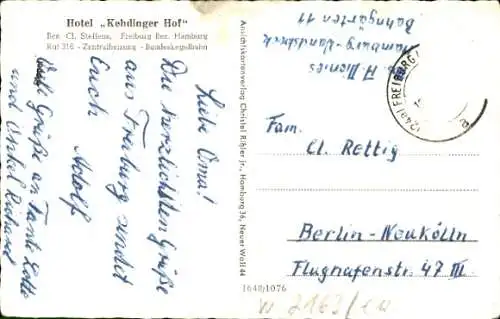 Hotel „Kehdinger Hof"
Bes. Cl. Steffens, Freiburg Bez. Hamburg
Ruf 316 - Zentralheizung - Bundeskegelbahn
Liebe Oma!
Die herzlichsten Grüße
aus Freiburg sendet
Euch
Adolf
Viele Grüße an Tante Lotte
und Onkel Richard
Ansichtskartenverlag Christel Rißler Jr., Hamburg 36, Neuer Wall 44
A. Dienies
Hamburg-Wandsbeck
Bahngärten 11
(24a) FREIBURG
Fam.
Cl. Rettig
Berlin-Neukölln
Flughafenstr. 47 III
1648/1076